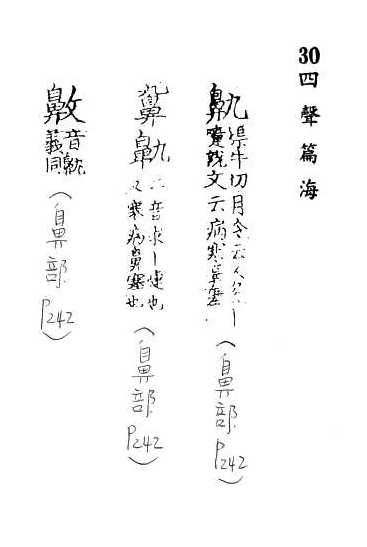 30四聲篇海
鼽渠牛切月令云人丨
嚏說文云病寒鼻塞
(鼻部P242)
鼽音求丨嚏也
又寒病鼻塞也
(鼻部P242)
音鼽
義同
(鼻部P242)